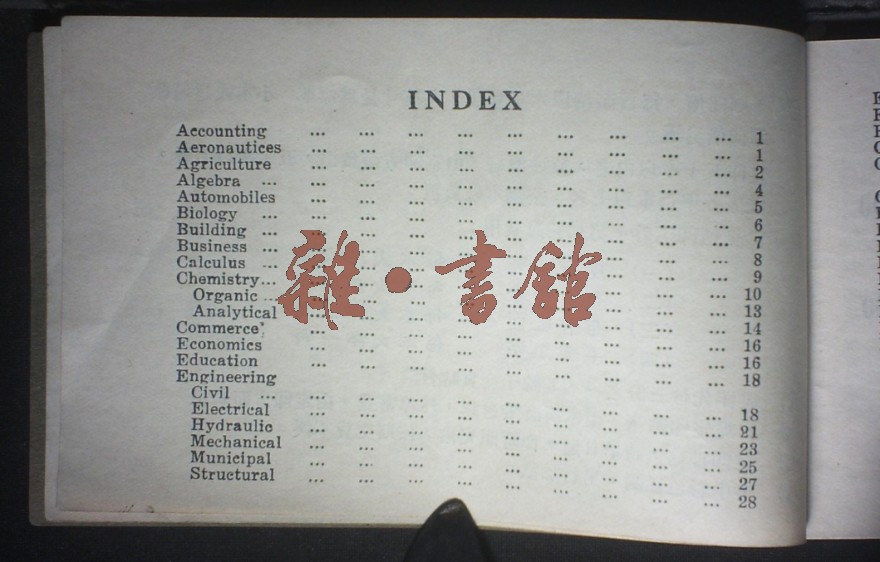 INDEX
Accounting ... ... ... ... ... ... ... ... ... 1
Aeronautices ... ... ... ... ... ... ... ... ... 1
Agriculture ... ... ... ... ... ... ... ... ... 2
Algebra ... ... ... ... ... ... ... ... ... ... 4
Automobiles ... ... ... ... ... ... ... ... ... 5
Biology ... ... ... ... ... ... ... ... ... ... 6
Building ... ... ... ... ... ... ... ... ... ... 7
Business ... ... ... ... ... ... ... ... ... ... 8
Calculus ... ... ... ... ... ... ... ... ... ... 9
Chemistry... ... ... ... ... ... ... ... ... ... 10
Organic ... ... ... ... ... ... ... ... ... ... 13
Analytical ... ... ... ... ... ... ... ... ... 14
Commerce ... ... ... ... ... ... ... ... ... 16
Economics ... ... ... ... ... ... ... ... ... 16
Education ... ... ... ... ... ... ... ... ... 18
Engineering
Civil ... ... ... ... ... ... ... ... ... ... 18
Electrical ... ... ... ... ... ... ... ... ... 21
Hydraulic ... ... ... ... ... ... ... ... ... 23
Mechanical ... ... ... ... ... ... ... ... ... 25
Municipal ... ... ... ... ... ... ... ... ... 27
Structural ... ... ... ... ... ... ... ... ... 28
雜·書館